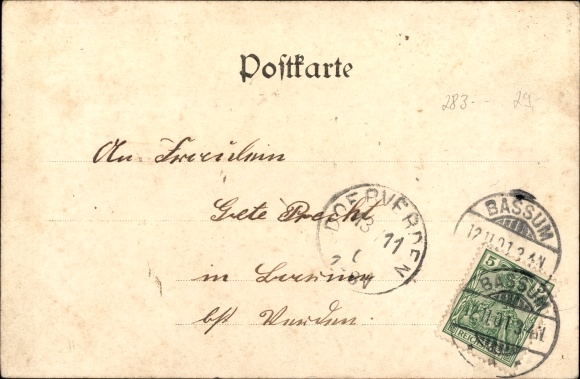 Postkarte
283.- 29,-
An Fräulein
Grete Precht
in
bst Verden.
DOERVERDEN
13 11
BASSUM
12.11.01.3-4N
5
BASSUM
12.11.01.3-4N
REICHSPOST